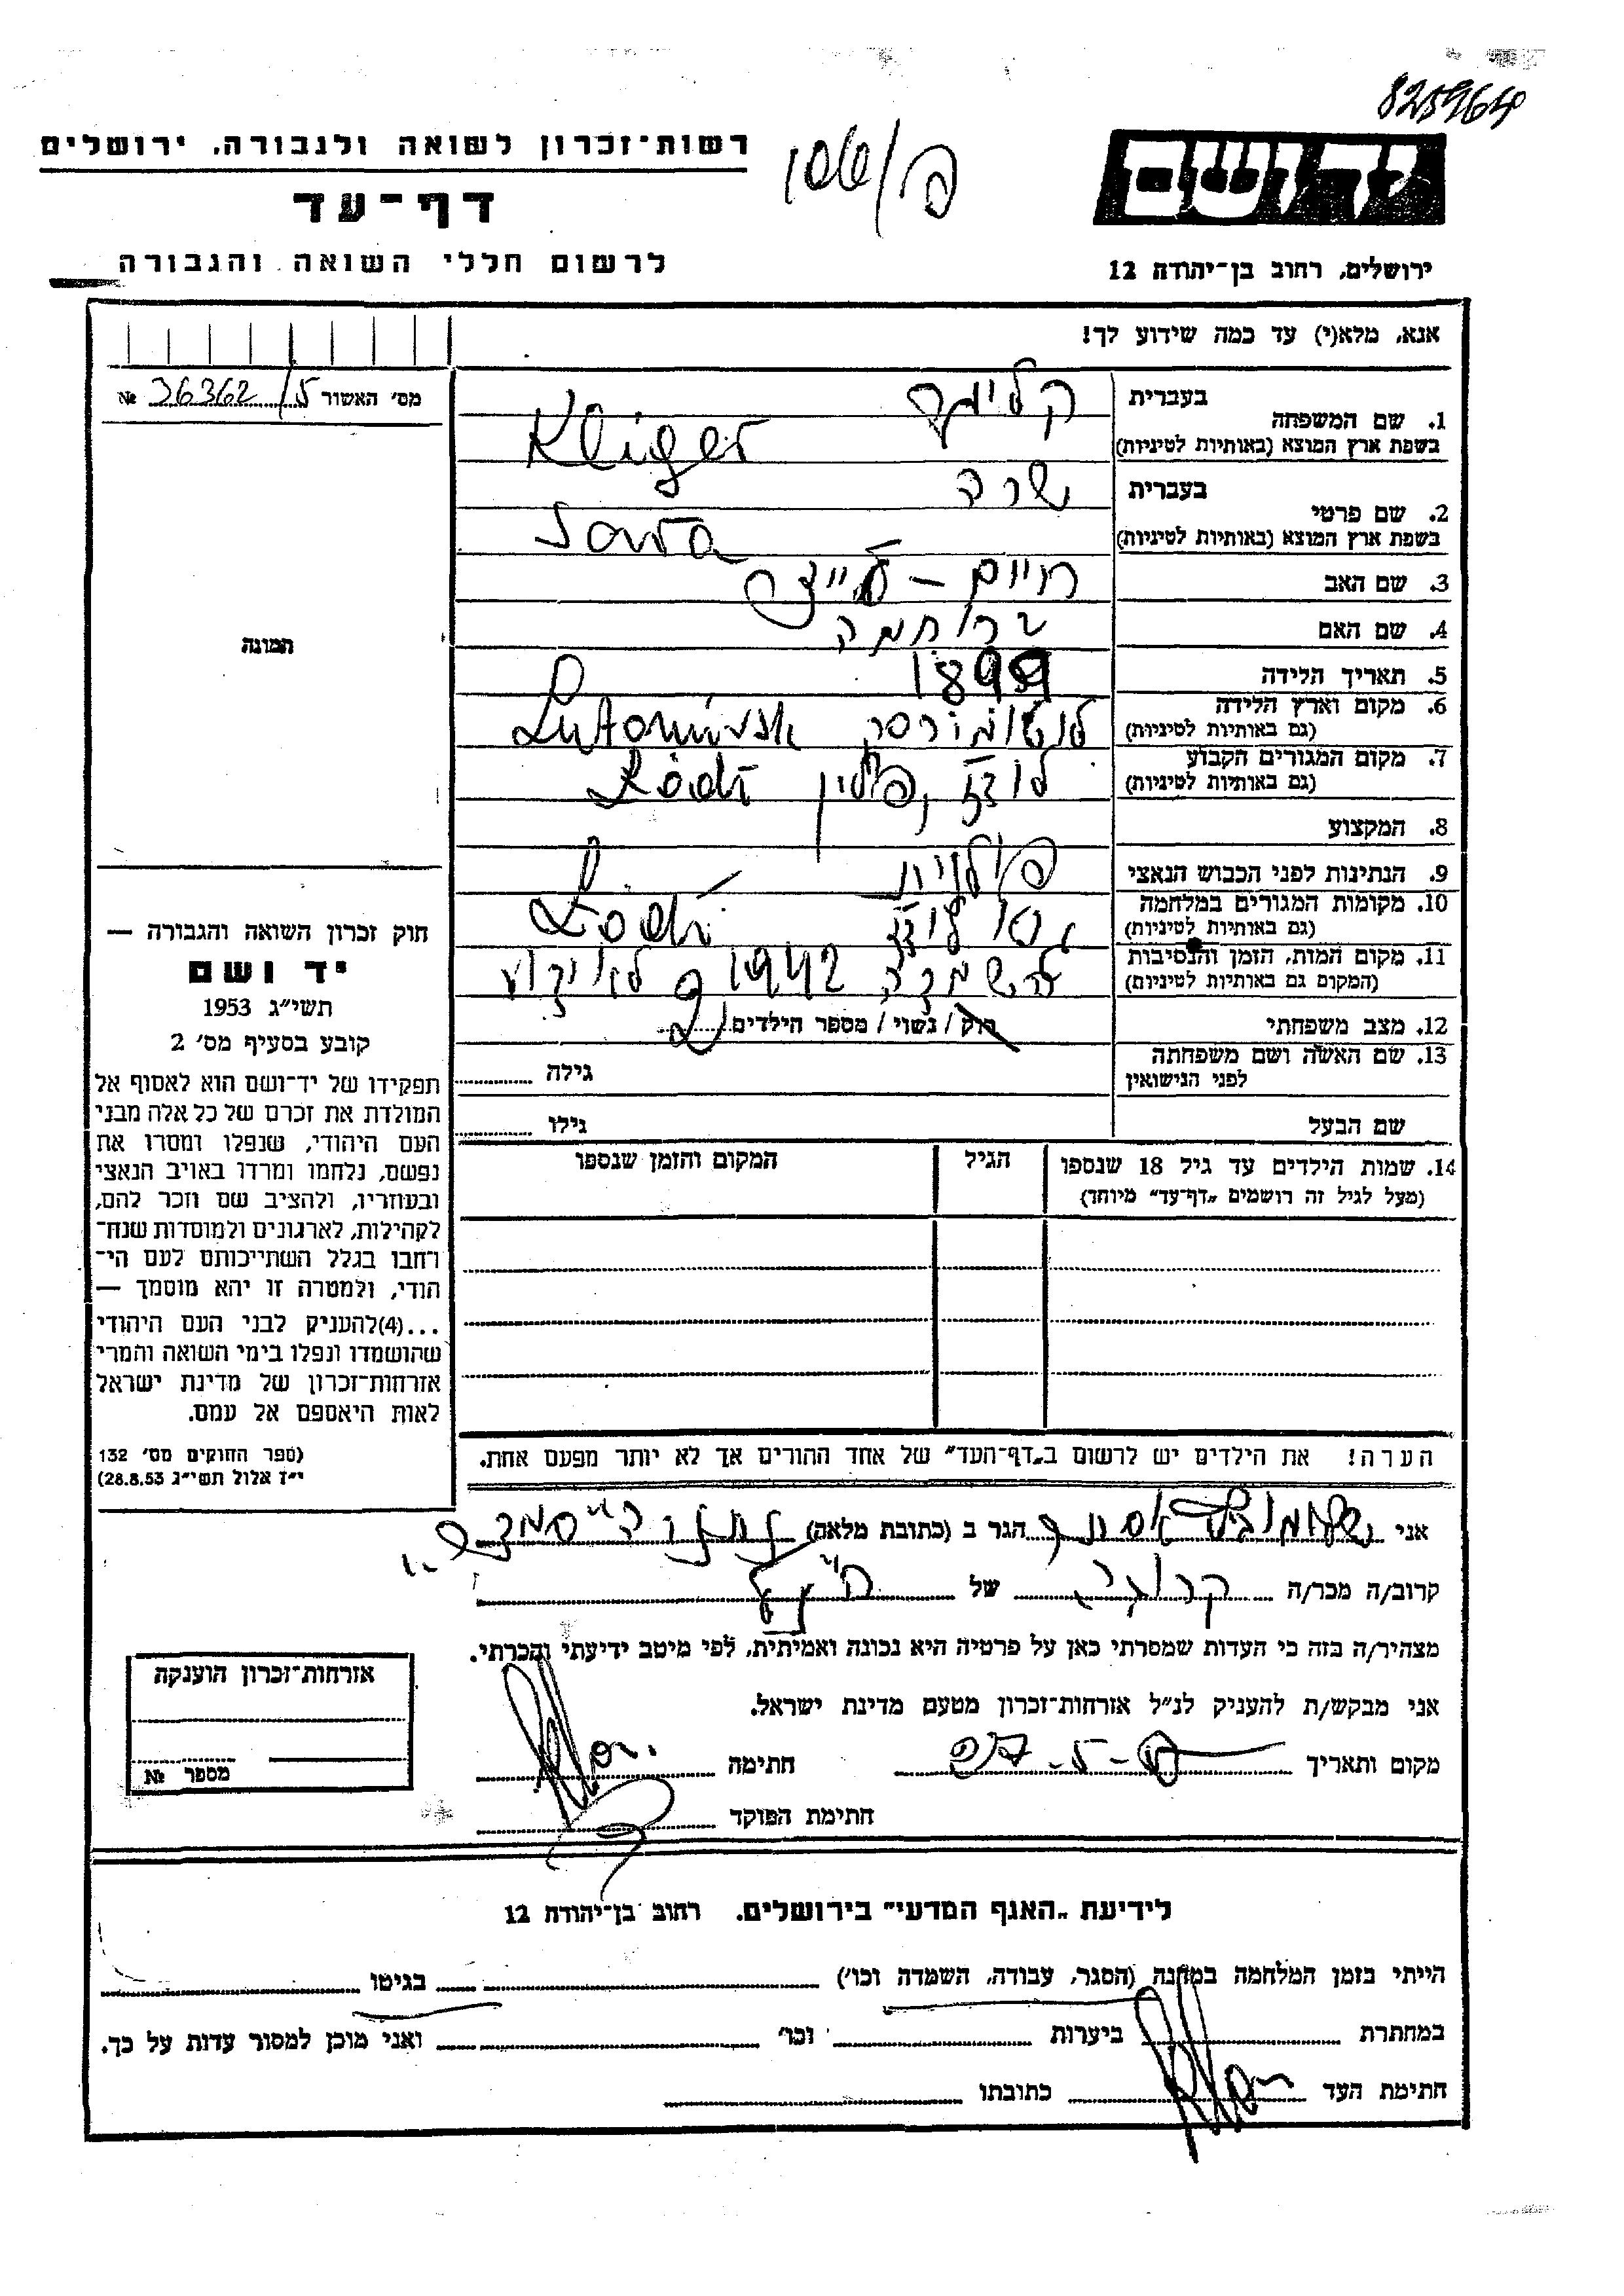 828964
רשות־זכרון לשואה ולגבורה, ירושלים
106/פ
יד ושם
דף־עד
לרשום חללי השואה והגבורה
ירושלים, רחוב בן־יהודה 12
אנא, מלא(י) עד כמה שידוע לך!
מס׳ האשור 36362/5 №
בעברית קליגר
1. שם המשפחה
בשפת ארץ המוצא (באותיות לטיניות) Kliger
בעברית שרה
2. שם פרטי
בשפת ארץ המוצא (באותיות לטיניות) Soura
3. שם האב חיים –
4. שם האם ברוחמה
5. תאריך הלידה 1899
6. מקום וארץ הלידה
(גם באותיות לטיניות) Lutomirsk
7. מקום המגורים הקבוע לודז, פולין Łódź
(גם באותיות לטיניות)
8. המקצוע
9. הנתינות לפני הכבוש הנאצי פולנית
10. מקומות המגורים במלחמה גטו לודז Łódź
(גם באותיות לטיניות)
11. מקום המות, הזמן והנסיבות 1942 לא ידוע
(המקום גם באותיות לטיניות)
12. מצב משפחתי רוק / נשוי / מספר הילדים 2
13. שם האשה ושם משפחתה
לפני הנישואין גילה
שם הבעל גילו
14. שמות הילדים עד גיל 18 שנספו הגיל המקום והזמן שנספו
(מעל לגיל זה רושמים „דף־עד” מיוחד)
הערה! את הילדים יש לרשום ב„דף־העד” של אחד ההורים אך לא יותר מפעם אחת.
תמונה
חוק זכרון השואה והגבורה —
יד ושם
תשי״ג 1953
קובע בסעיף מס׳ 2
תפקידו של יד־ושם הוא לאסוף אל
המולדת את זכרם של כל אלה מבני
העם היהודי, שנפלו ומסרו את
נפשם, נלחמו ומרדו באויב הנאצי
ובעוזריו, ולהציב שם וזכר להם,
לקהילות, לארגונים ולמוסדות שנח־
רחבו בגלל השתייכותם לעם הי־
הודי, ולמטרה זו יהא מוסמך —
...(4)להעניק לבני העם היהודי
שהושמדו ונפלו בימי השואה והמרי
אזרחות־זכרון של מדינת ישראל
לאות היאספם אל עמם.
(ספר החוקים מס׳ 132
י״ז אלול תשי״ג 28.8.53)
אני הגר ב (כתובת מלאה)
קרוב/ה מכר/ה של
מצהיר/ה בזה כי העדות שמסרתי כאן על פרטיה היא נכונה ואמיתית, לפי מיטב ידיעתי והכרתי.
אני מבקש/ת להעניק לנ״ל אזרחות־זכרון מטעם מדינת ישראל.
מקום ותאריך חתימה
חתימת הפוקד
אזרחות־זכרון הוענקה
מספר №
לידיעת „האגף המדעי” בירושלים. רחוב בן־יהודה 12
הייתי בזמן המלחמה במחנה (הסגר, עבודה, השמדה וכו׳) בגיטו
במחתרת ביערות וכו׳ ואני מוכן למסור עדות על כך.
חתימת העד כתובתו